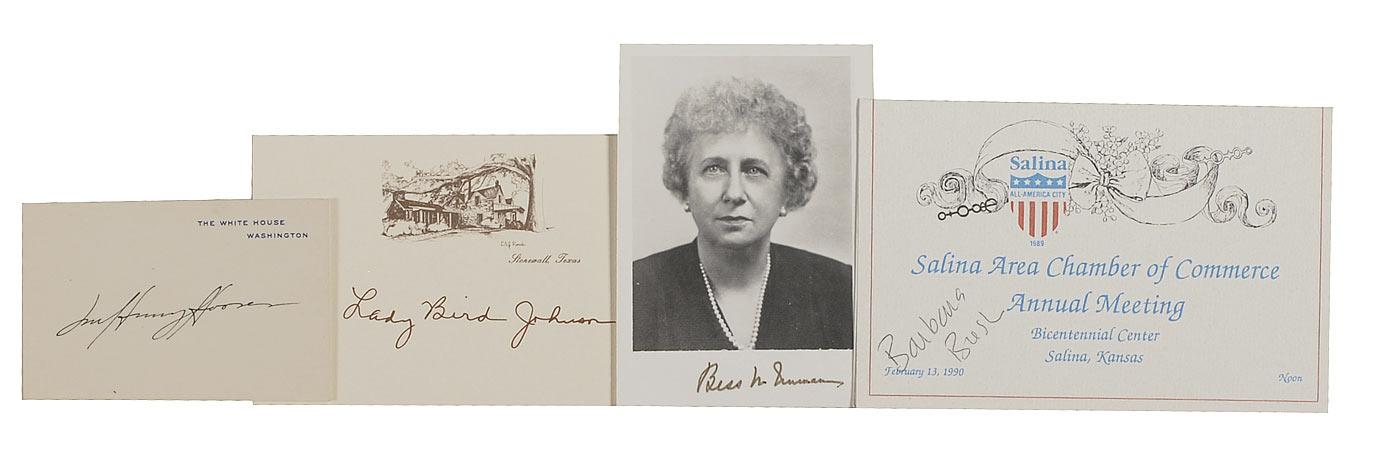 THE WHITE HOUSE
WASHINGTON
Lou Henry Hoover
Stonewall, Texas
Lady Bird Johnson
Bess W Truman
Salina
ALL-AMERICA CITY
1989
Salina Area Chamber of Commerce
Annual Meeting
Bicentennial Center
Salina, Kansas
Barbara
Bush
February 13, 1990
Noon